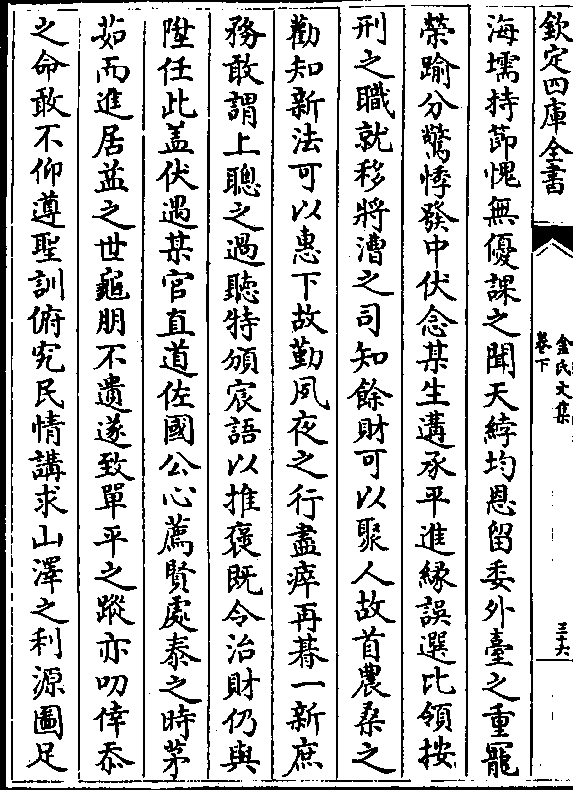 欽定四庫全書
金氏文集
卷下
三十六
海壖持節愧無優課之聞天綍均恩留委外臺之重寵
榮踰分驚悸發中伏念某生遘承平進緣誤選比領按
刑之職就移將漕之司知餘財可以聚人故首農桑之
勸知新法可以惠下故勤夙夜之行盡瘁再朞一新庶
務敢謂上聰之過聽特頒宸語以推褒既令治財仍與
陞任此蓋伏遇某官直道佐國公心薦賢處泰之時茅
茹而進居益之世龜朋不遺遂致單平之蹤亦叨倖忝
之命敢不仰遵聖訓俯究民情講求山澤之利源圖足